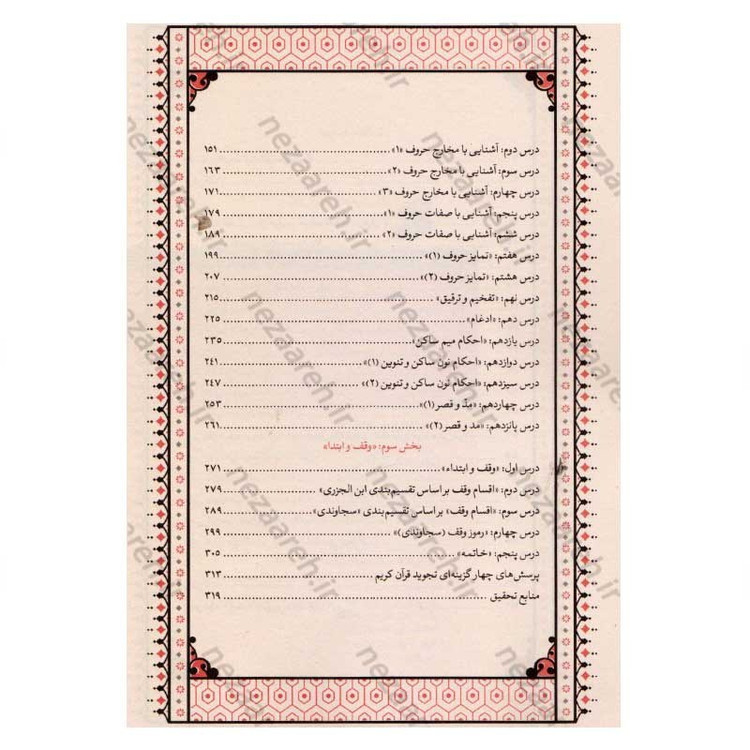 درس دوم: آشنایی با مخارج حروف «۱» ۱۵۱
درس سوم: آشنایی با مخارج حروف «۲» ۱۶۳
درس چهارم: آشنایی با مخارج حروف «۳» ۱۷۱
درس پنجم: آشنایی با صفات حروف «۱» ۱۷۹
درس ششم: آشنایی با صفات حروف «۲» ۱۸۹
درس هفتم: «تمایز حروف (۱)» ۱۹۹
درس هشتم: «تمایز حروف (۲)» ۲۰۷
درس نهم: «تفخیم و ترقیق» ۲۱۵
درس دهم: «ادغام» ۲۲۵
درس یازدهم: «احکام میم ساکن» ۲۳۵
درس دوازدهم: «احکام نون ساکن و تنوین (۱)» ۲۴۱
درس سیزدهم: «احکام نون ساکن و تنوین (۲)» ۲۴۷
درس چهاردهم: «مدّ و قصر (۱)» ۲۵۳
درس پانزدهم: «مد و قصر (۲)» ۲۶۱
بخش سوم: «وقف و ابتدا»
درس اول: «وقف و ابتداء» ۲۷۱
درس دوم: «اقسام وقف بر اساس تقسیم‌بندی ابن الجزری» ۲۷۹
درس سوم: «اقسام وقف» بر اساس تقسیم‌بندی «سجاوندی» ۲۸۹
درس چهارم: «رموز وقف (سجاوندی)» ۲۹۹
درس پنجم: «خاتمه» ۳۰۵
پرسش‌های چهارگزینه‌ای تجوید قرآن کریم ۳۱۳
منابع تحقیق ۳۱۹
nezaareh.ir